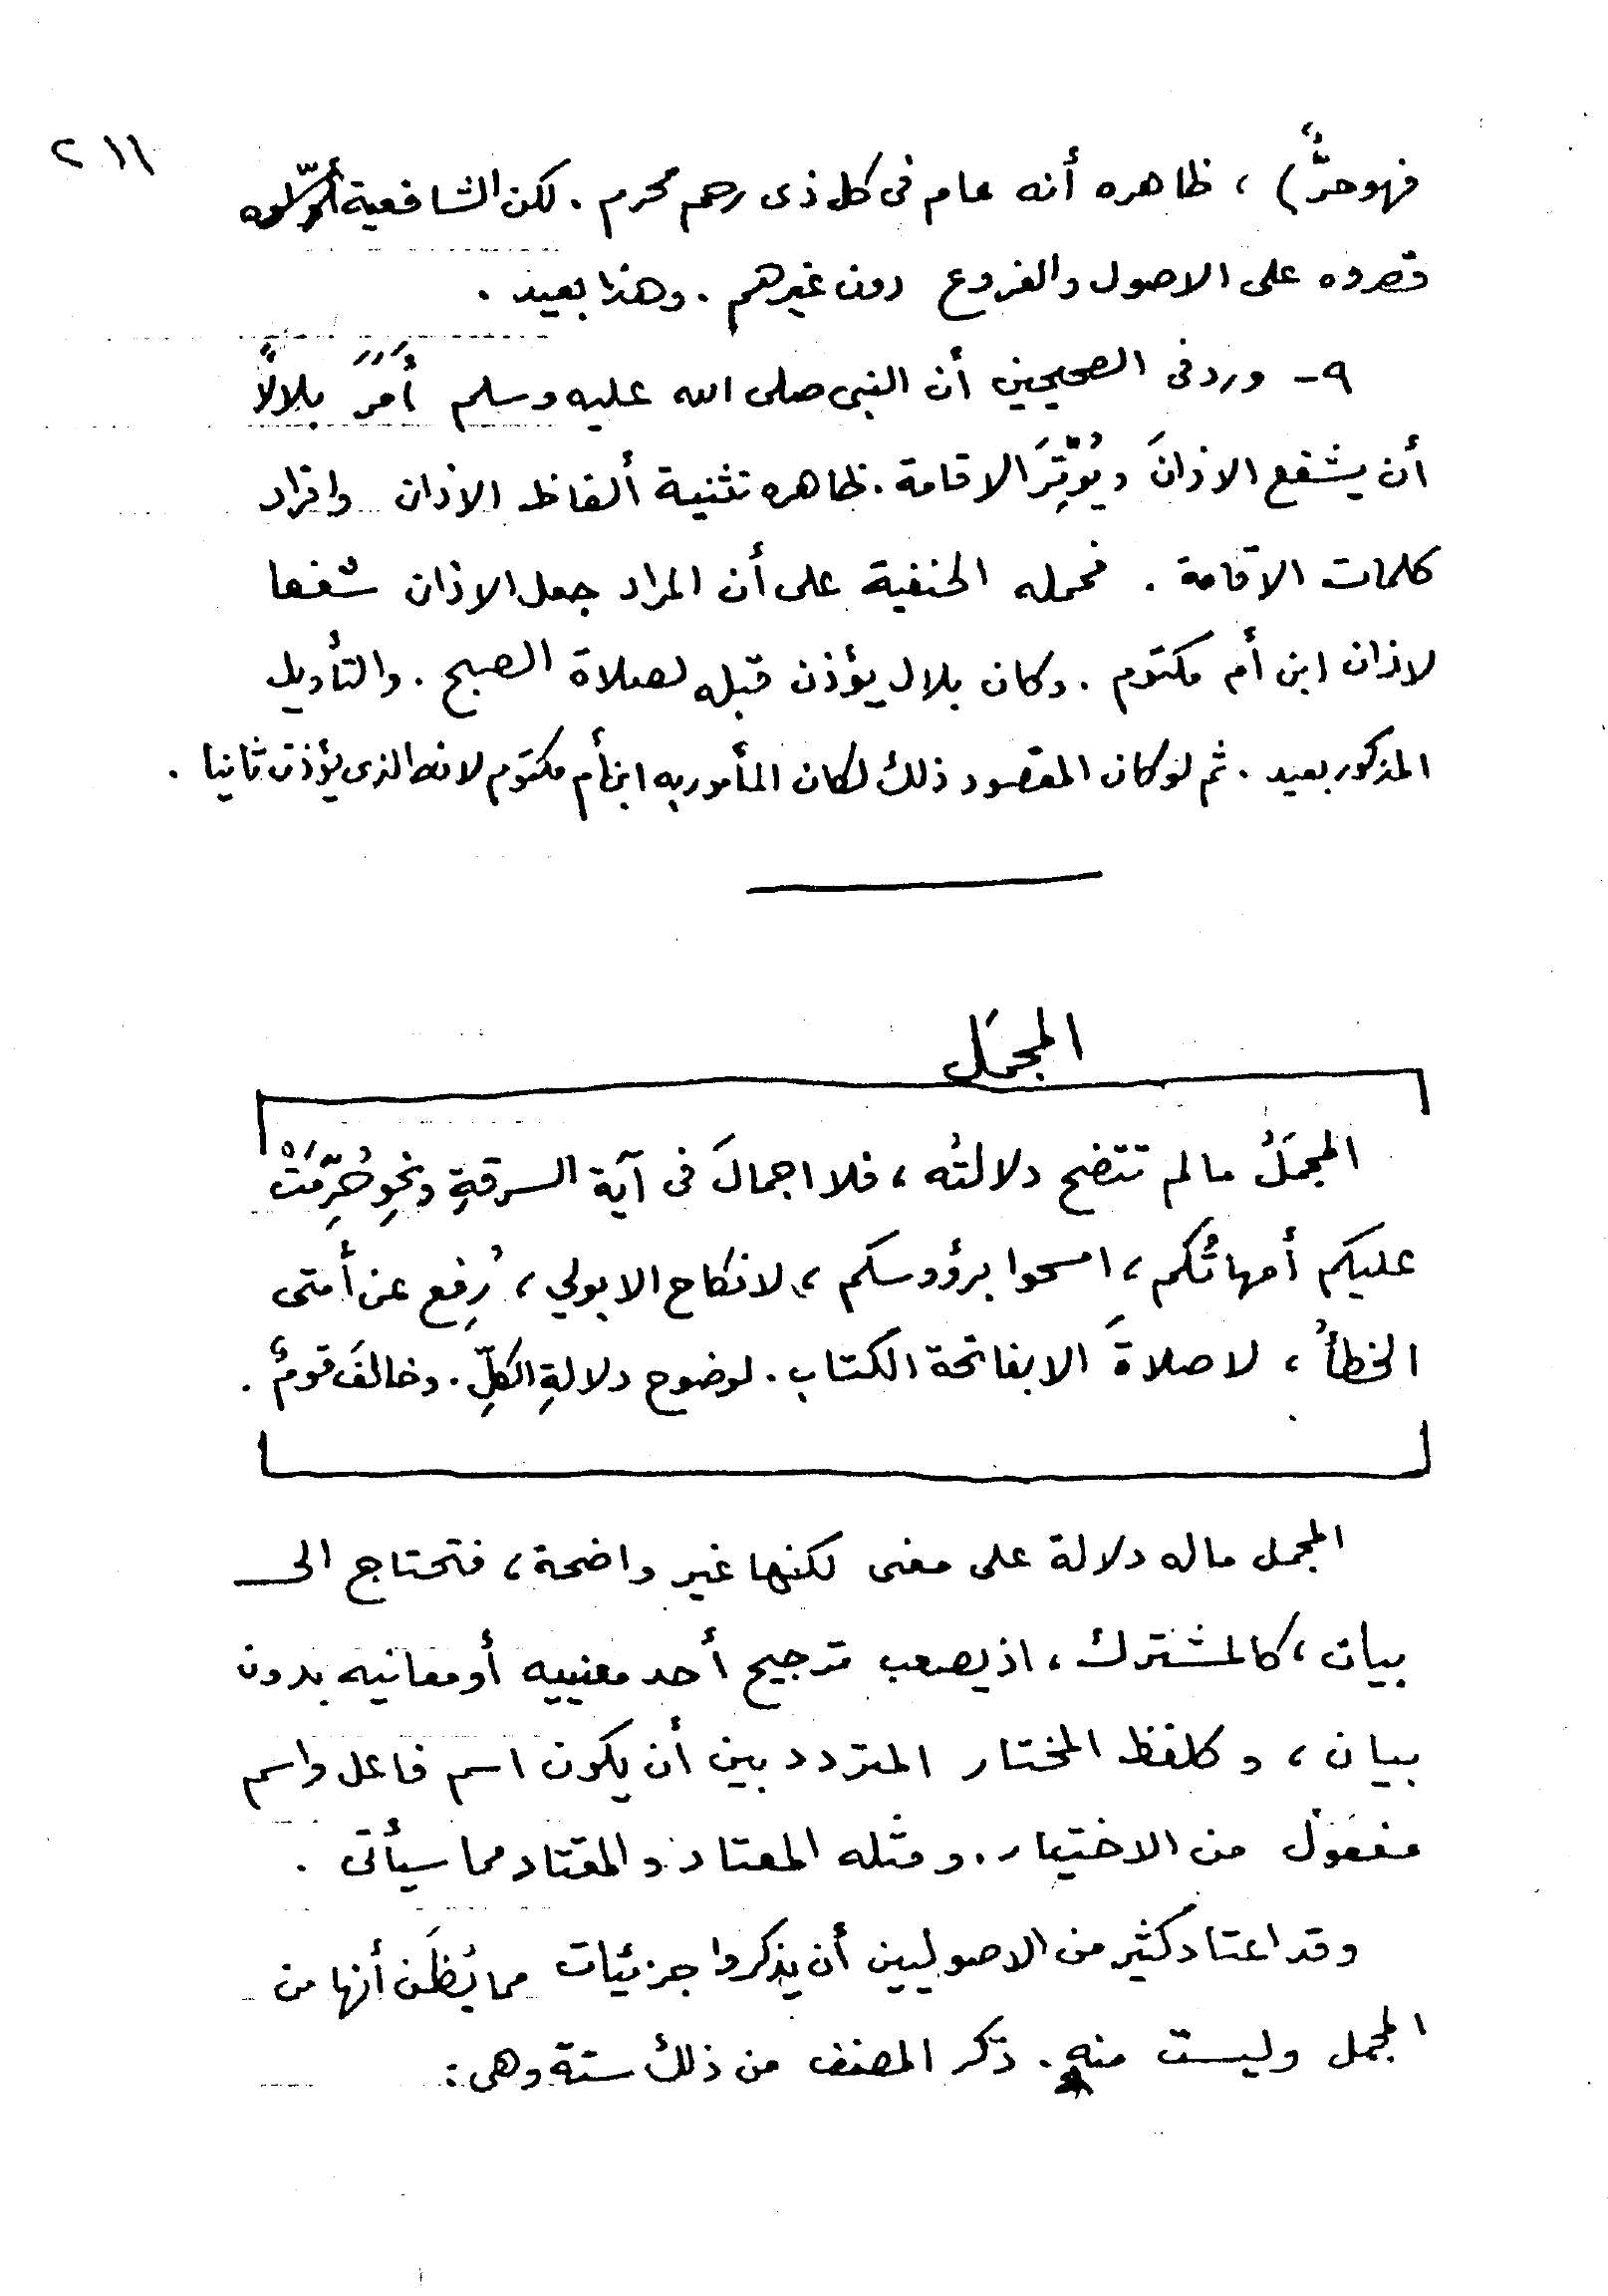 ٢١١
فهو حرٌّ) ، ظاهره أنه عام فى كل ذى رحم محرم . لكن الشافعية
قصروه على الاصول والفروع دون غيرهم . وهذا بعيد .
٩- ورد فى الصحيحين أن النبى صلى الله عليه وسلم أَمَرَ بلالاً
أن يشفع الاذانَ ويُوْتِرَ الاقامة . ظاهره تثنية ألفاظ الاذان وافراد
كلمات الاقامة . فحمله الحنفية على أن المراد جعل الاذان شفعا
لاذان ابن أم مكتوم . وكان بلال يؤذن قبله لصلاة الصبح . والتأويل
المذكور بعيد . ثم لو كان المقصود ذلك لكان المأمور به ابن أم مكتوم لانه الذى يؤذن ثانيا .
المجمَل
المجمَلُ مالم تتضح دلالتُه ، فلا اجمالَ فى آية السرقةِ ونحوِ حُرِّمَتْ
عليكم أمهاتُكم ، امسحوا برؤوسكم ، لا نكاح الا بولي ، رُفِع عن أمتى
الخطأُ ، لا صلاةَ الا بفاتحة الكتاب . لوضوح دلالةِ الكلِّ . وخالفَ قومٌ .
المجمل ماله دلالة على معنى لكنها غير واضحة ، فتحتاج الى
بيان ، كالمشترك ، اذ يصعب ترجيح أحد معنييه أو معانيه بدون
بيان ، وكلفظ المختار المتردد بين أن يكون اسم فاعل واسم
مفعول من الاختيار . ومثله المعتاد والمقتاد مما سيأتى .
وقد اعتاد كثير من الاصوليين أن يذكروا جزئيات مما يُظَن أنها من
المجمل وليست منه . ذكر المصنف من ذلك ستة وهى :